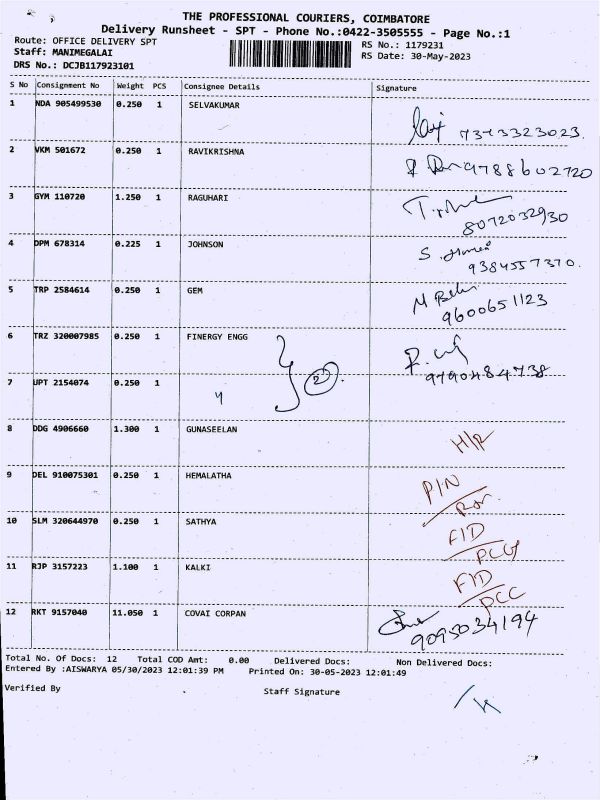 THE PROFESSIONAL COURIERS, COIMBATORE
Delivery Runsheet - SPT - Phone No.:0422-3505555 - Page No.:1
Route: OFFICE DELIVERY SPT RS No.: 1179231
Staff: MANIMEGALAI RS Date: 30-May-2023
DRS No.: DCJB117923101
S No Consignment No Weight PCS Consignee Details Signature
1 NDA 905499530 0.250 1 SELVAKUMAR
7373323023
2 VKM 501672 0.250 1 RAVIKRISHNA
9788602720
3 GYM 110720 1.250 1 RAGUHARI
8072032930
4 DPM 678314 0.225 1 JOHNSON
9384557370.
5 TRP 2584614 0.250 1 GEM
9600651123
6 TRZ 320007985 0.250 1 FINERGY ENGG
9790484738
7 UPT 2154074 0.250 1 " 2
8 DDG 4906660 1.300 1 GUNASEELAN
H/R
9 DEL 910075301 0.250 1 HEMALATHA
P/N
10 SLM 320644970 0.250 1 SATHYA
FID
11 RJP 3157223 1.100 1 KALKI
FID
PCC
12 RKT 9157040 11.050 1 COVAI CORPAN
9095034194
Total No. Of Docs: 12 Total COD Amt: 0.00 Delivered Docs: Non Delivered Docs:
Entered By :AISWARYA 05/30/2023 12:01:39 PM Printed On: 30-05-2023 12:01:49
Verified By Staff Signature